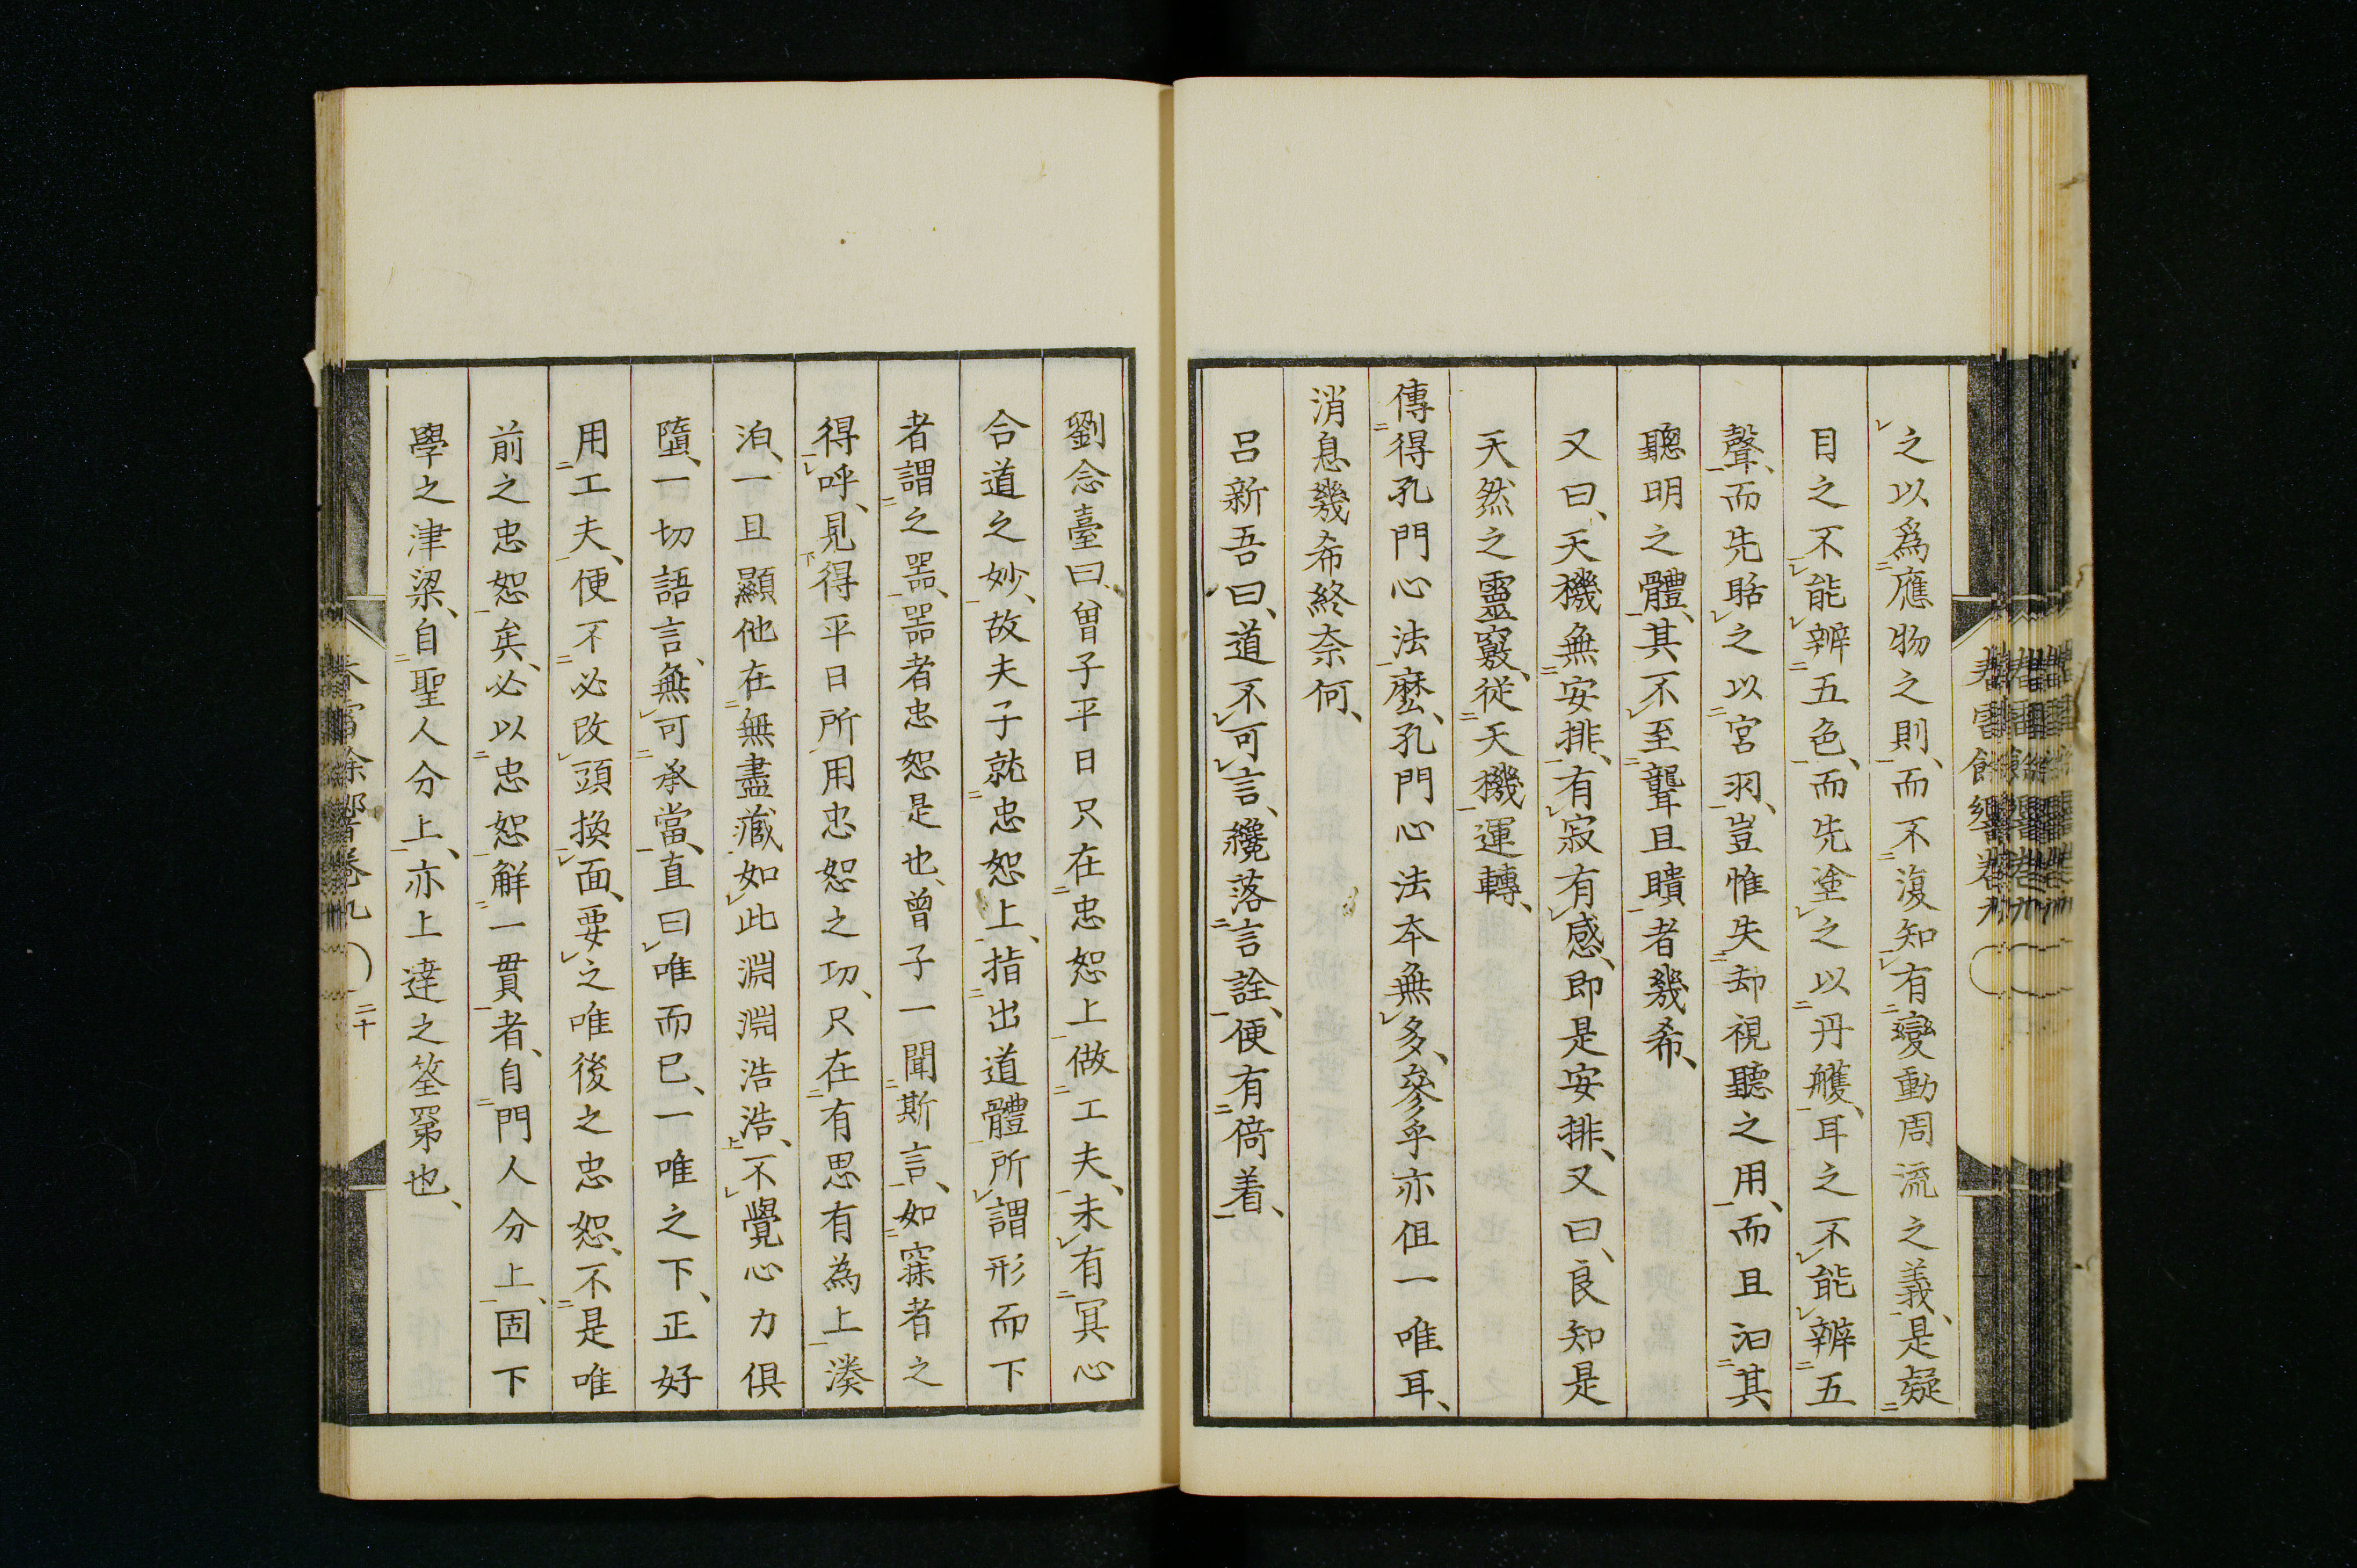 之以爲應物之則、而不復知有變動周流之義、是疑
目之不能辨五色、而先塗之以丹雘、耳之不能辨五
聲、而先聒之以宮羽、豈惟失却視聽之用、而且汩其
聰明之體、其不至聾且瞶者幾希、
又曰、天機無安排、有寂有感、即是安排、又曰、良知是
天然之靈竅、從天機運轉、
傳得孔門心法麽、孔門心法本無多、參乎亦但一唯耳、
消息幾希終奈何、
呂新吾曰、道不可言、纔落言詮、便有倚着、
劉念臺曰、曾子平日只在忠恕上做工夫、未有冥心
合道之妙、故夫子就忠恕上、指出道體所謂形而下
者謂之噐、噐者忠恕是也、曾子一聞斯言、如寐者之
得呼、見得平日所用忠恕之功、只在有思有為上湊
泊、一旦顯他在無盡藏如此淵淵浩浩、不覺心力俱
墮、一切語言、無可承當、直曰唯而已、一唯之下、正好
用工夫、便不必改頭換面、要之唯後之忠恕、不是唯
前之忠恕矣、必以忠恕解一貫者、自門人分上、固下
學之津梁、自聖人分上、亦上達之筌罤也、
餘響卷九 二十